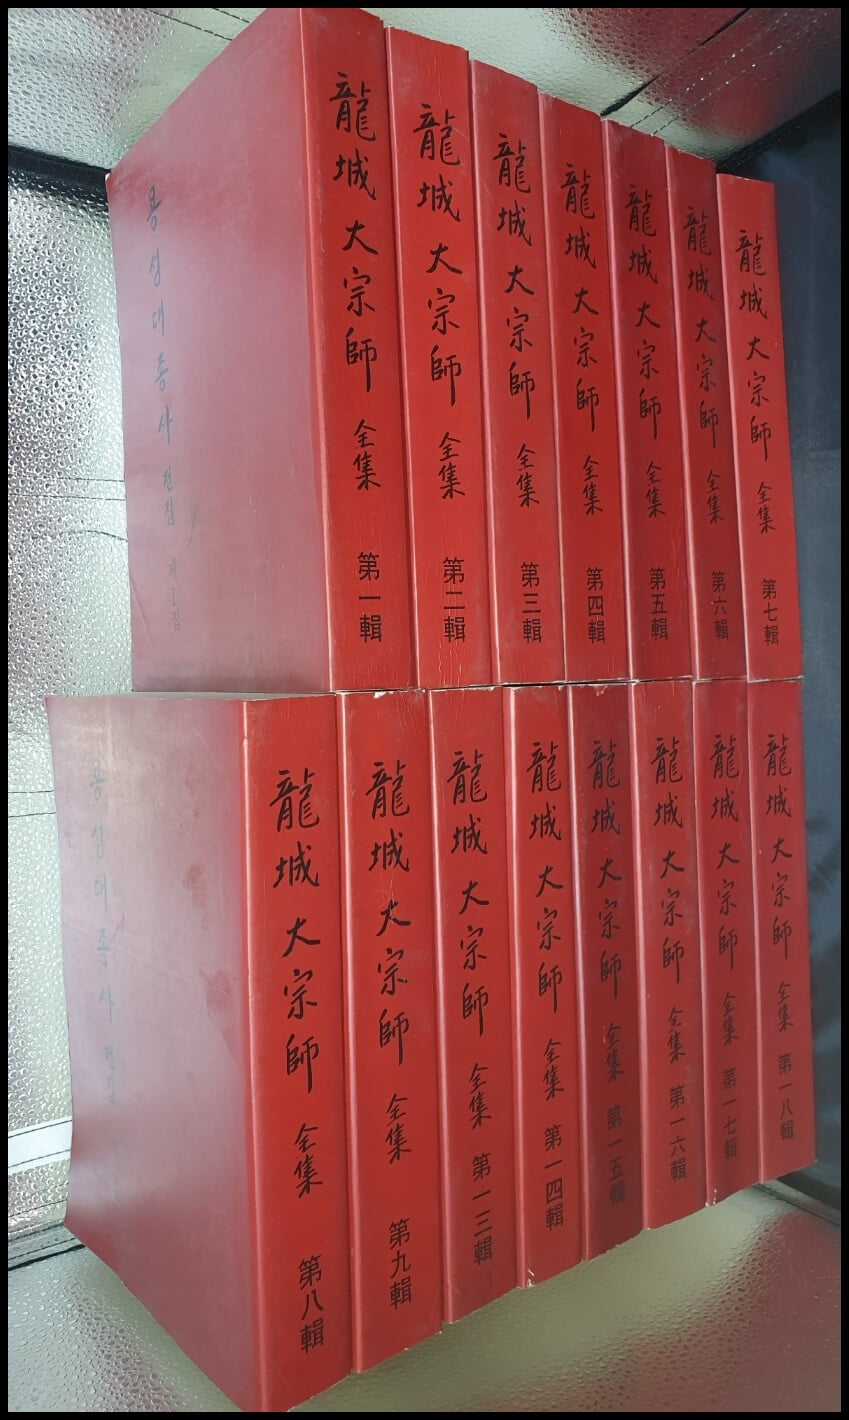 용성대종사 전집 제1집
龍城大宗師 全集 第一輯
龍城大宗師 全集 第二輯
龍城大宗師 全集 第三輯
龍城大宗師 全集 第四輯
龍城大宗師 全集 第五輯
龍城大宗師 全集 第六輯
龍城大宗師 全集 第七輯
용성대종사 전집
龍城大宗師 全集 第八輯
龍城大宗師 全集 第九輯
龍城大宗師 全集 第一三輯
龍城大宗師 全集 第一四輯
龍城大宗師 全集 第一五輯
龍城大宗師 全集 第一六輯
龍城大宗師 全集 第一七輯
龍城大宗師 全集 第一八輯